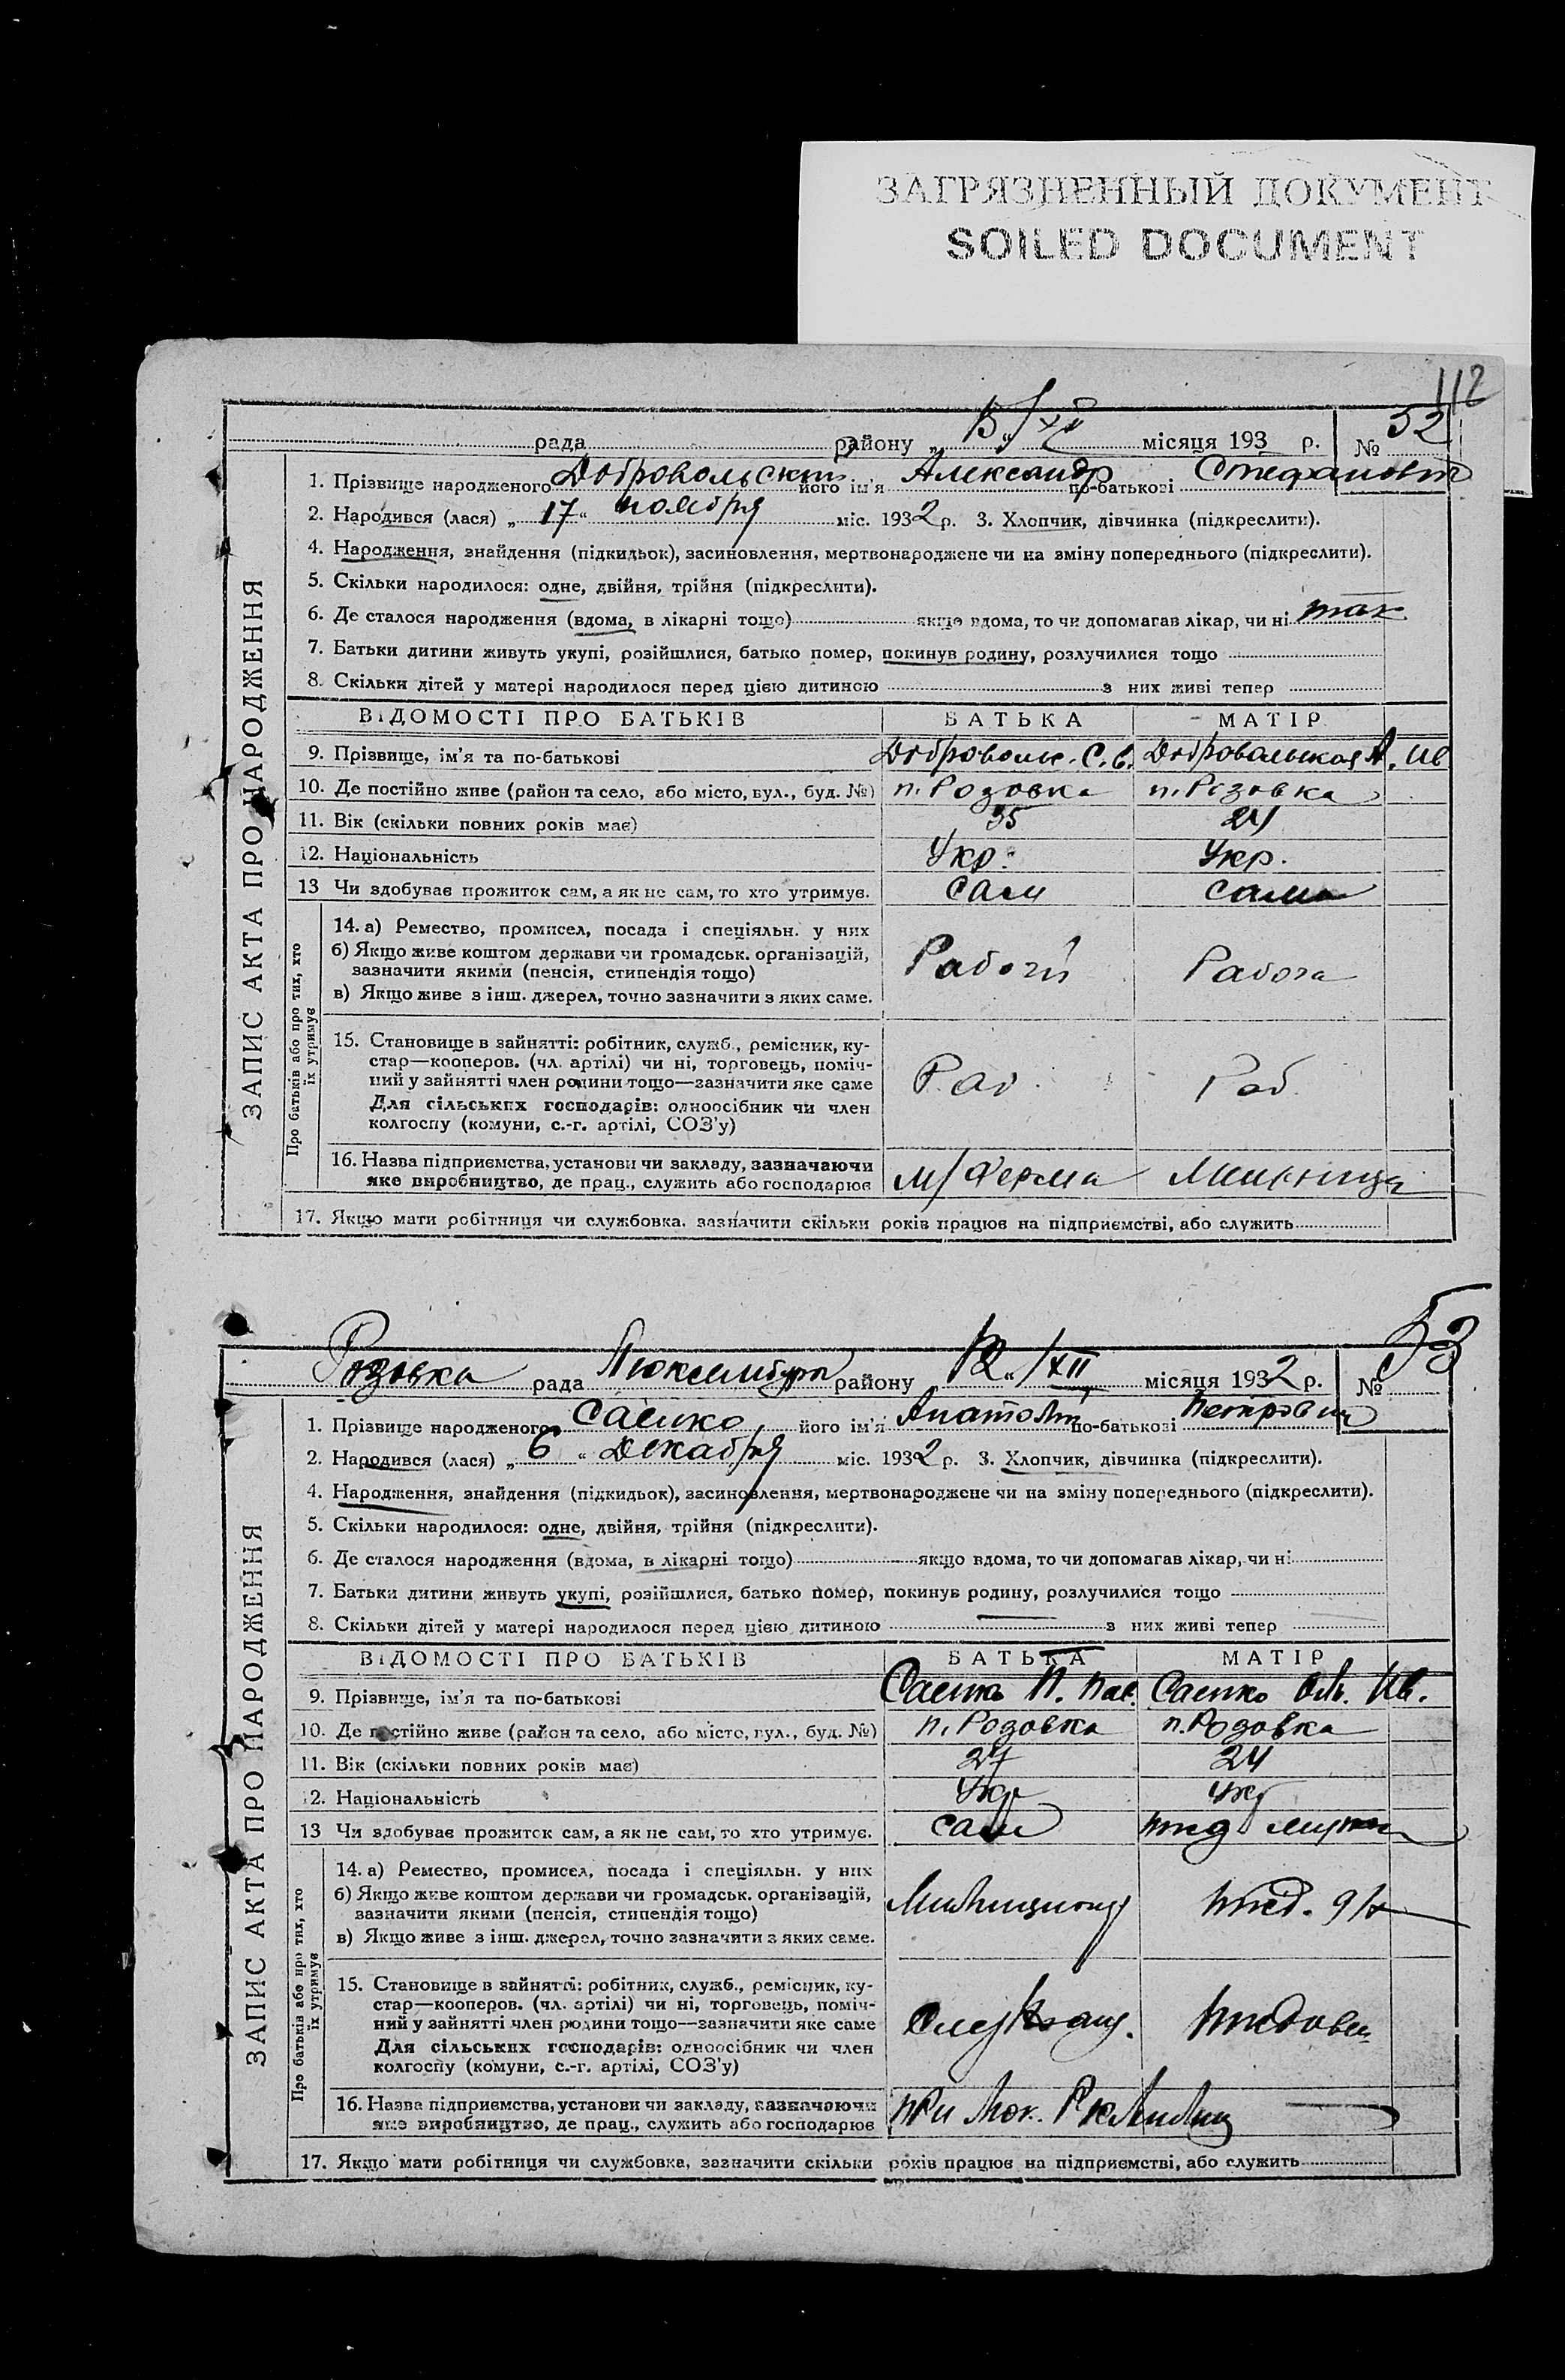 ЗАГРЯЗНЕННЫЙ ДОКУМЕНТ
SOILED DOCUMENT
112
рада району „ місяця 193 р. № 52
1. Прізвище народженого Добровольский його ім'я Александр по-батькові Стефанович
2. Народився (лася) „17“ ноября міс. 1932 р. 3. Хлопчик, дівчинка (підкреслити).
4. Народження, знайдення (підкидьок), засиновлення, мертвонароджене чи на зміну попереднього (підкреслити).
5. Скільки народилося: одне, двійня, трійня (підкреслити).
6. Де сталося народження (вдома, в лікарні тощо) якщо вдома, то чи допомагав лікар, чи ні так
7. Батьки дитини живуть укупі, розійшлися, батько помер, покинув родину, розлучилися тощо
8. Скільки дітей у матері народилося перед цією дитиною з них живі тепер
ВІДОМОСТІ ПРО БАТЬКІВ БАТЬКА МАТІР
9. Прізвище, ім'я та по-батькові Доброволь. С. В. Добровольская А. Ив
10. Де постійно живе (район та село, або місто, вул., буд. №) п. Розовка п. Розовка
11. Вік (скільки повних років має) 35 24
12. Національність Укр. Укр.
13 Чи здобував прожиток сам, а як не сам, то хто утримує. сам сама
14. а) Ремество, промисел, посада і спеціяльн. у них
б) Якщо живе коштом держави чи громадськ. організацій,
зазначити якими (пенсія, стипендія тощо)
в) Якщо живе з інш. джерел, точно зазначити з яких саме.
Рабочй Рабоча
15. Становище в зайнятті: робітник, служб., ремісник, ку-
стар—кооперов. (чл. артілі) чи ні, торговець, поміч-
ний у зайнятті член родини тощо—зазначити яке саме
Для сільських господарів: одноосібник чи член
колгоспу (комуни, с.-г. артілі, СОЗ'у)
Раб. Раб.
16. Назва підприємства, установи чи закладу, зазначаючи
яке виробництво, де прац., служить або господарює
м/Ферма
17. Якщо мати робітниця чи службовка, зазначити скільки років працює на підприємстві, або служить
ЗАПИС АКТА ПРО НАРОДЖЕННЯ
Про батьків або про тих, хто
їх утримує
Розовка рада Люксембург району „12“/XII місяця 1932 р. № 53
1. Прізвище народженого Саенко його ім'я Анатолий по-батькові Петрович
2. Народився (лася) „6“ Декабря міс. 1932 р. 3. Хлопчик, дівчинка (підкреслити).
4. Народження, знайдення (підкидьок), засиновлення, мертвонароджене чи на зміну попереднього (підкреслити).
5. Скільки народилося: одне, двійня, трійня (підкреслити).
6. Де сталося народження (вдома, в лікарні тощо) якщо вдома, то чи допомагав лікар, чи ні
7. Батьки дитини живуть укупі, розійшлися, батько помер, покинув родину, розлучилися тощо
8. Скільки дітей у матері народилося перед цією дитиною з них живі тепер
ВІДОМОСТІ ПРО БАТЬКІВ БАТЬКА МАТІР
9. Прізвище, ім'я та по-батькові Саенко П. Пав. Саенко Ол. Ив.
10. Де постійно живе (район та село, або місто, вул., буд. №) п. Розовка п. Розовка
11. Вік (скільки повних років має) 27 24
12. Національність Укр Укр
13 Чи здобував прожиток сам, а як не сам, то хто утримує. сам
14. а) Ремество, промисел, посада і спеціяльн. у них
б) Якщо живе коштом держави чи громадськ. організацій,
зазначити якими (пенсія, стипендія тощо)
в) Якщо живе з інш. джерел, точно зазначити з яких саме.
15. Становище в зайнятті: робітник, служб., ремісник, ку-
стар—кооперов. (чл. артілі) чи ні, торговець, поміч-
ний у зайнятті член родини тощо—зазначити яке саме
Для сільських господарів: одноосібник чи член
колгоспу (комуни, с.-г. артілі, СОЗ'у)
16. Назва підприємства, установи чи закладу, зазначаючи
яке виробництво, де прац., служить або господарює
при Люк.
17. Якщо мати робітниця чи службовка, зазначити скільки років працює на підприємстві, або служить
ЗАПИС АКТА ПРО НАРОДЖЕННЯ
Про батьків або про тих, хто
їх утримує